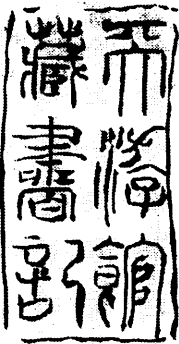 天游館
藏書記